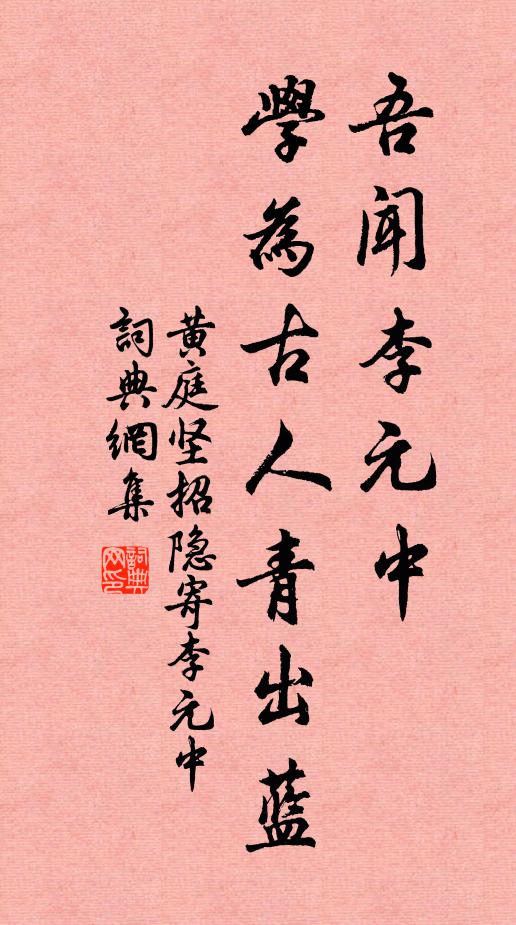 吾闻李元中
學為古人青出藍
黄庭坚招隐寄李元中
詞典網集
詞典网印